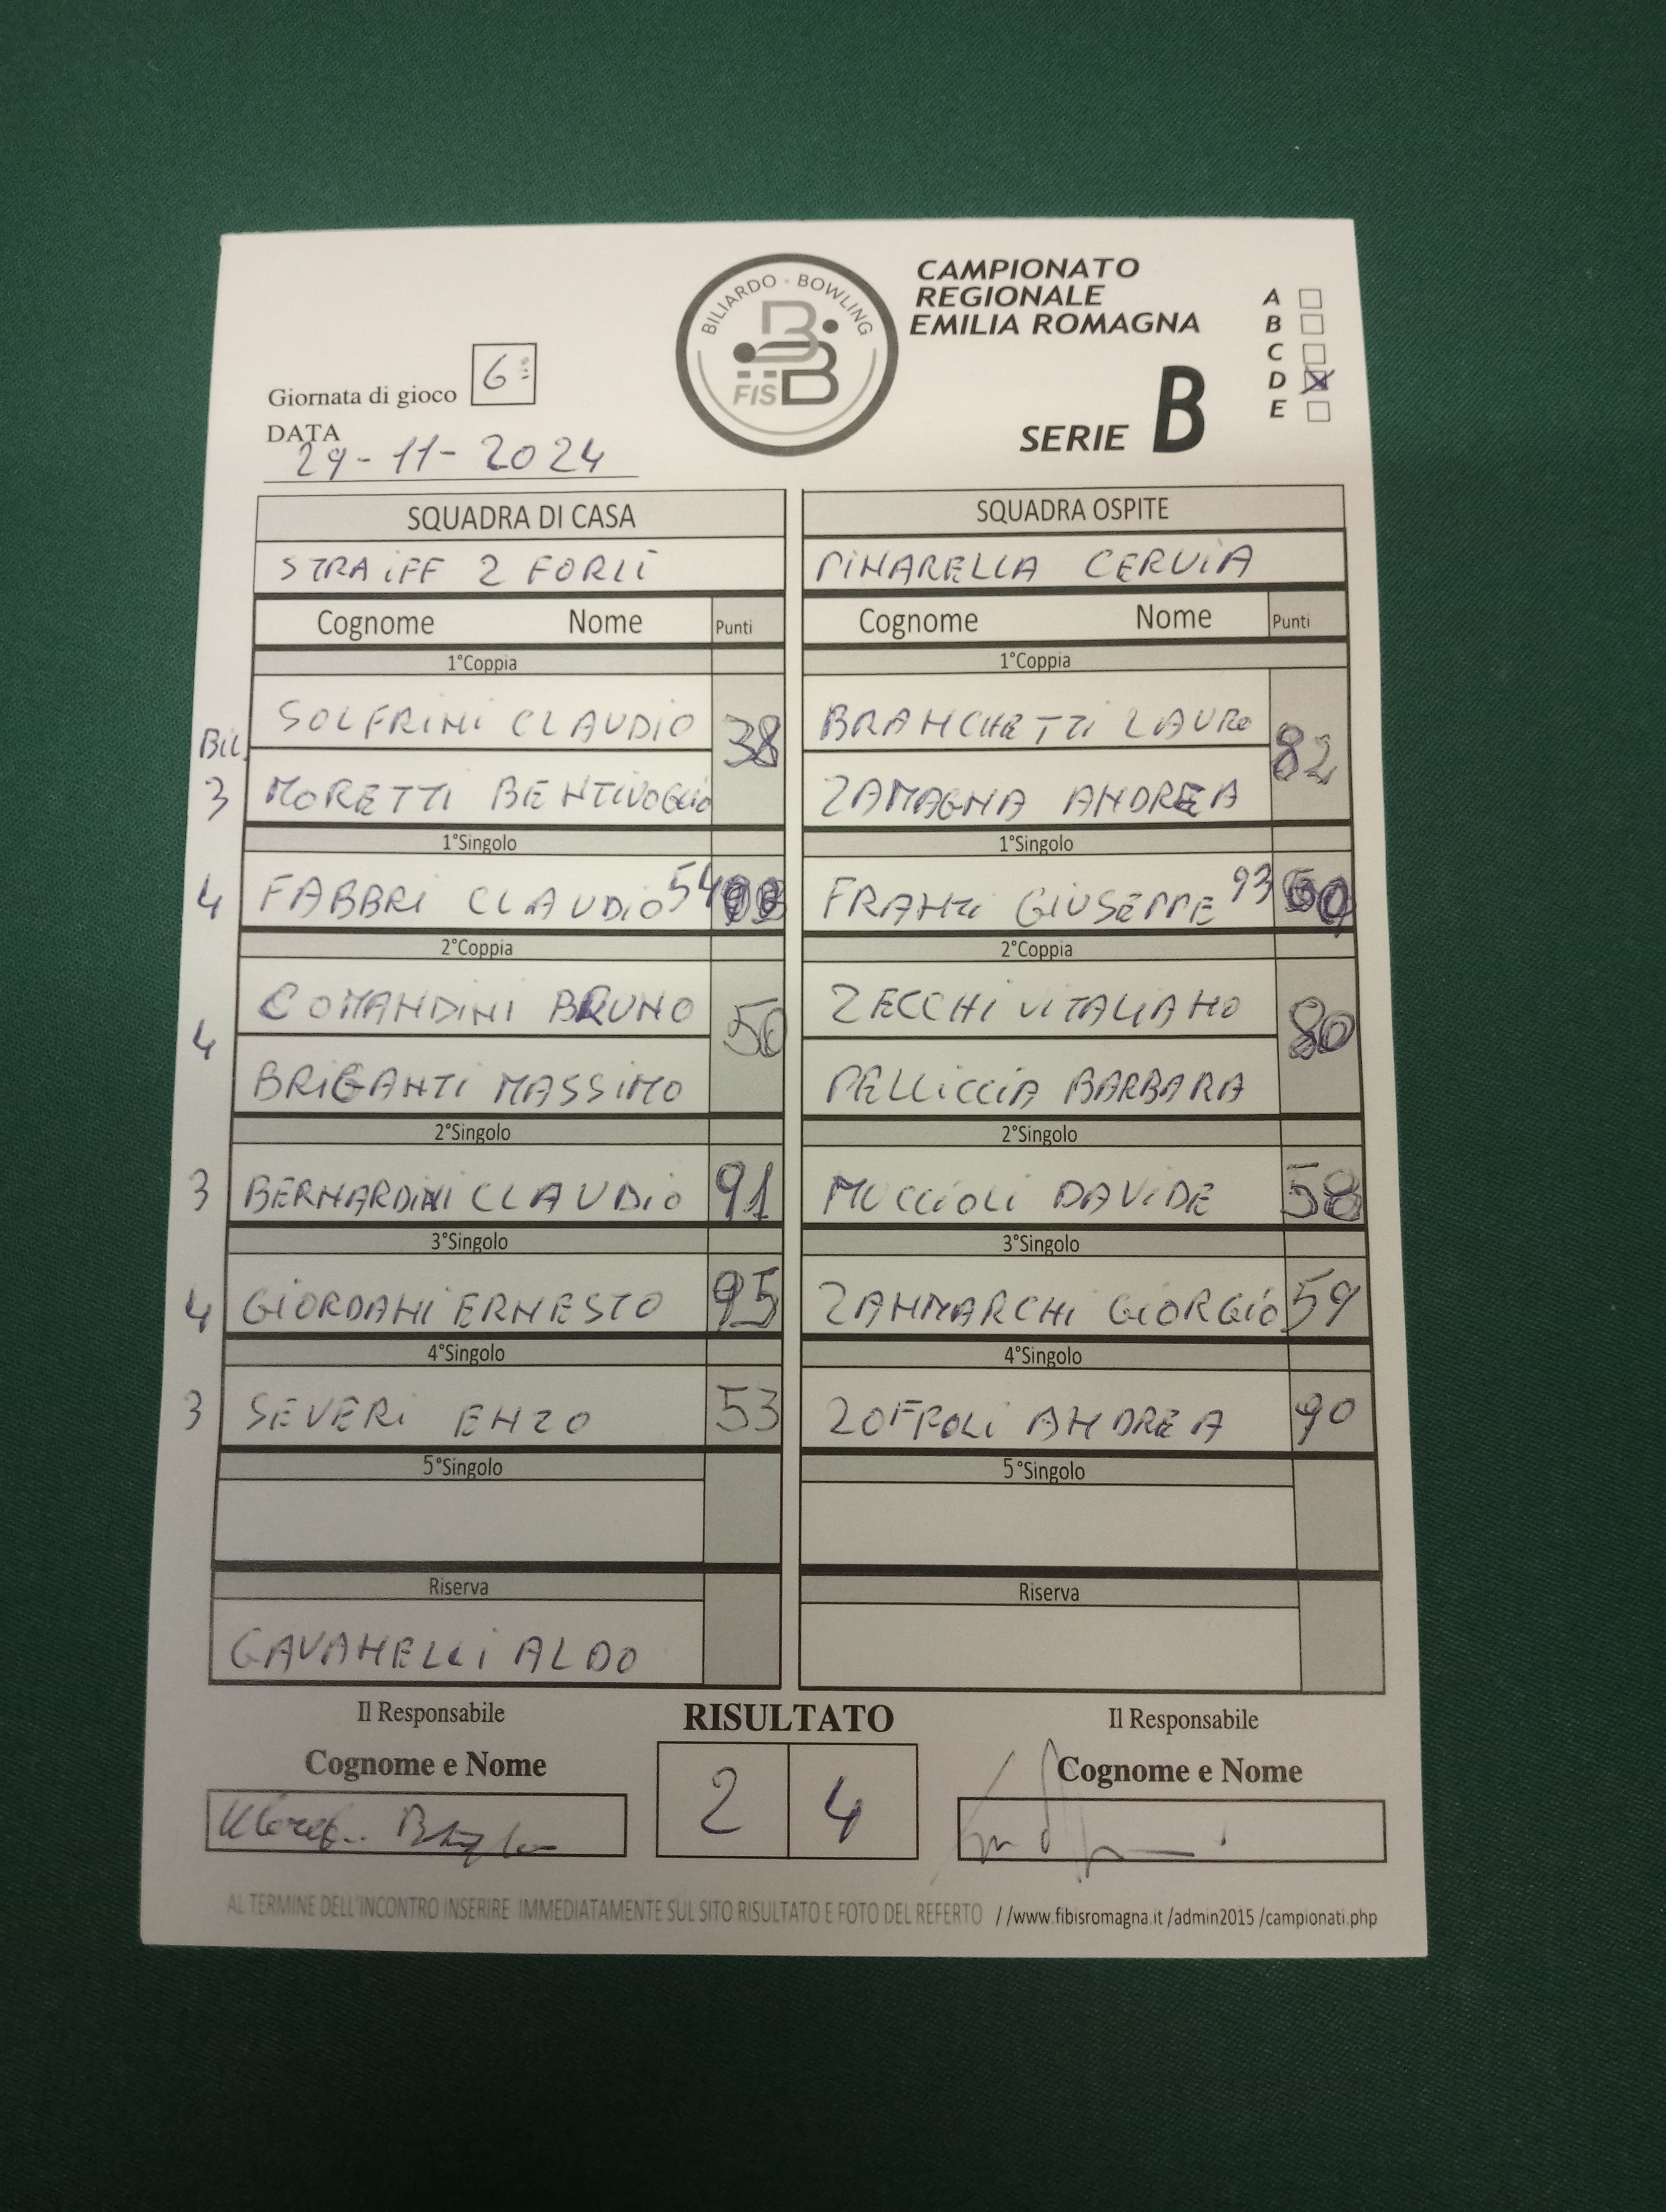 BILIARDO · BOWLING
FISBB
CAMPIONATO
REGIONALE
EMILIA ROMAGNA
A
B
C
D X
E
SERIE B
Giornata di gioco 6
DATA
29-11-2024
SQUADRA DI CASA SQUADRA OSPITE
STRAIFF 2 FORLÌ PINARELLA CERVIA
Cognome Nome Punti Cognome Nome Punti
1°Coppia 1°Coppia
SOLFRINI CLAUDIO 38 BRANCHETTI LAURO 82
Bil.
3 MORETTI BENTIVOGLIO ZAMAGNA ANDREA
1°Singolo 1°Singolo
4 FABBRI CLAUDIO 54 FRANTI GIUSEPPE 93
2°Coppia 2°Coppia
COMANDINI BRUNO 50 ZECCHI VITALIANO 80
4
BRIGANTI MASSIMO PELLICCIA BARBARA
2°Singolo 2°Singolo
3 BERNARDINI CLAUDIO 91 MUCCIOLI DAVIDE 58
3°Singolo 3°Singolo
4 GIORDANI ERNESTO 95 ZAMMARCHI GIORGIO 59
4°Singolo 4°Singolo
3 SEVERI ENZO 53 ZOFFOLI ANDREA 90
5°Singolo 5°Singolo
Riserva Riserva
GAVANELLI ALDO
Il Responsabile RISULTATO Il Responsabile
Cognome e Nome Cognome e Nome
2 4
AL TERMINE DELL'INCONTRO INSERIRE IMMEDIATAMENTE SUL SITO RISULTATO E FOTO DEL REFERTO //www.fibisromagna.it /admin2015 /campionati.php